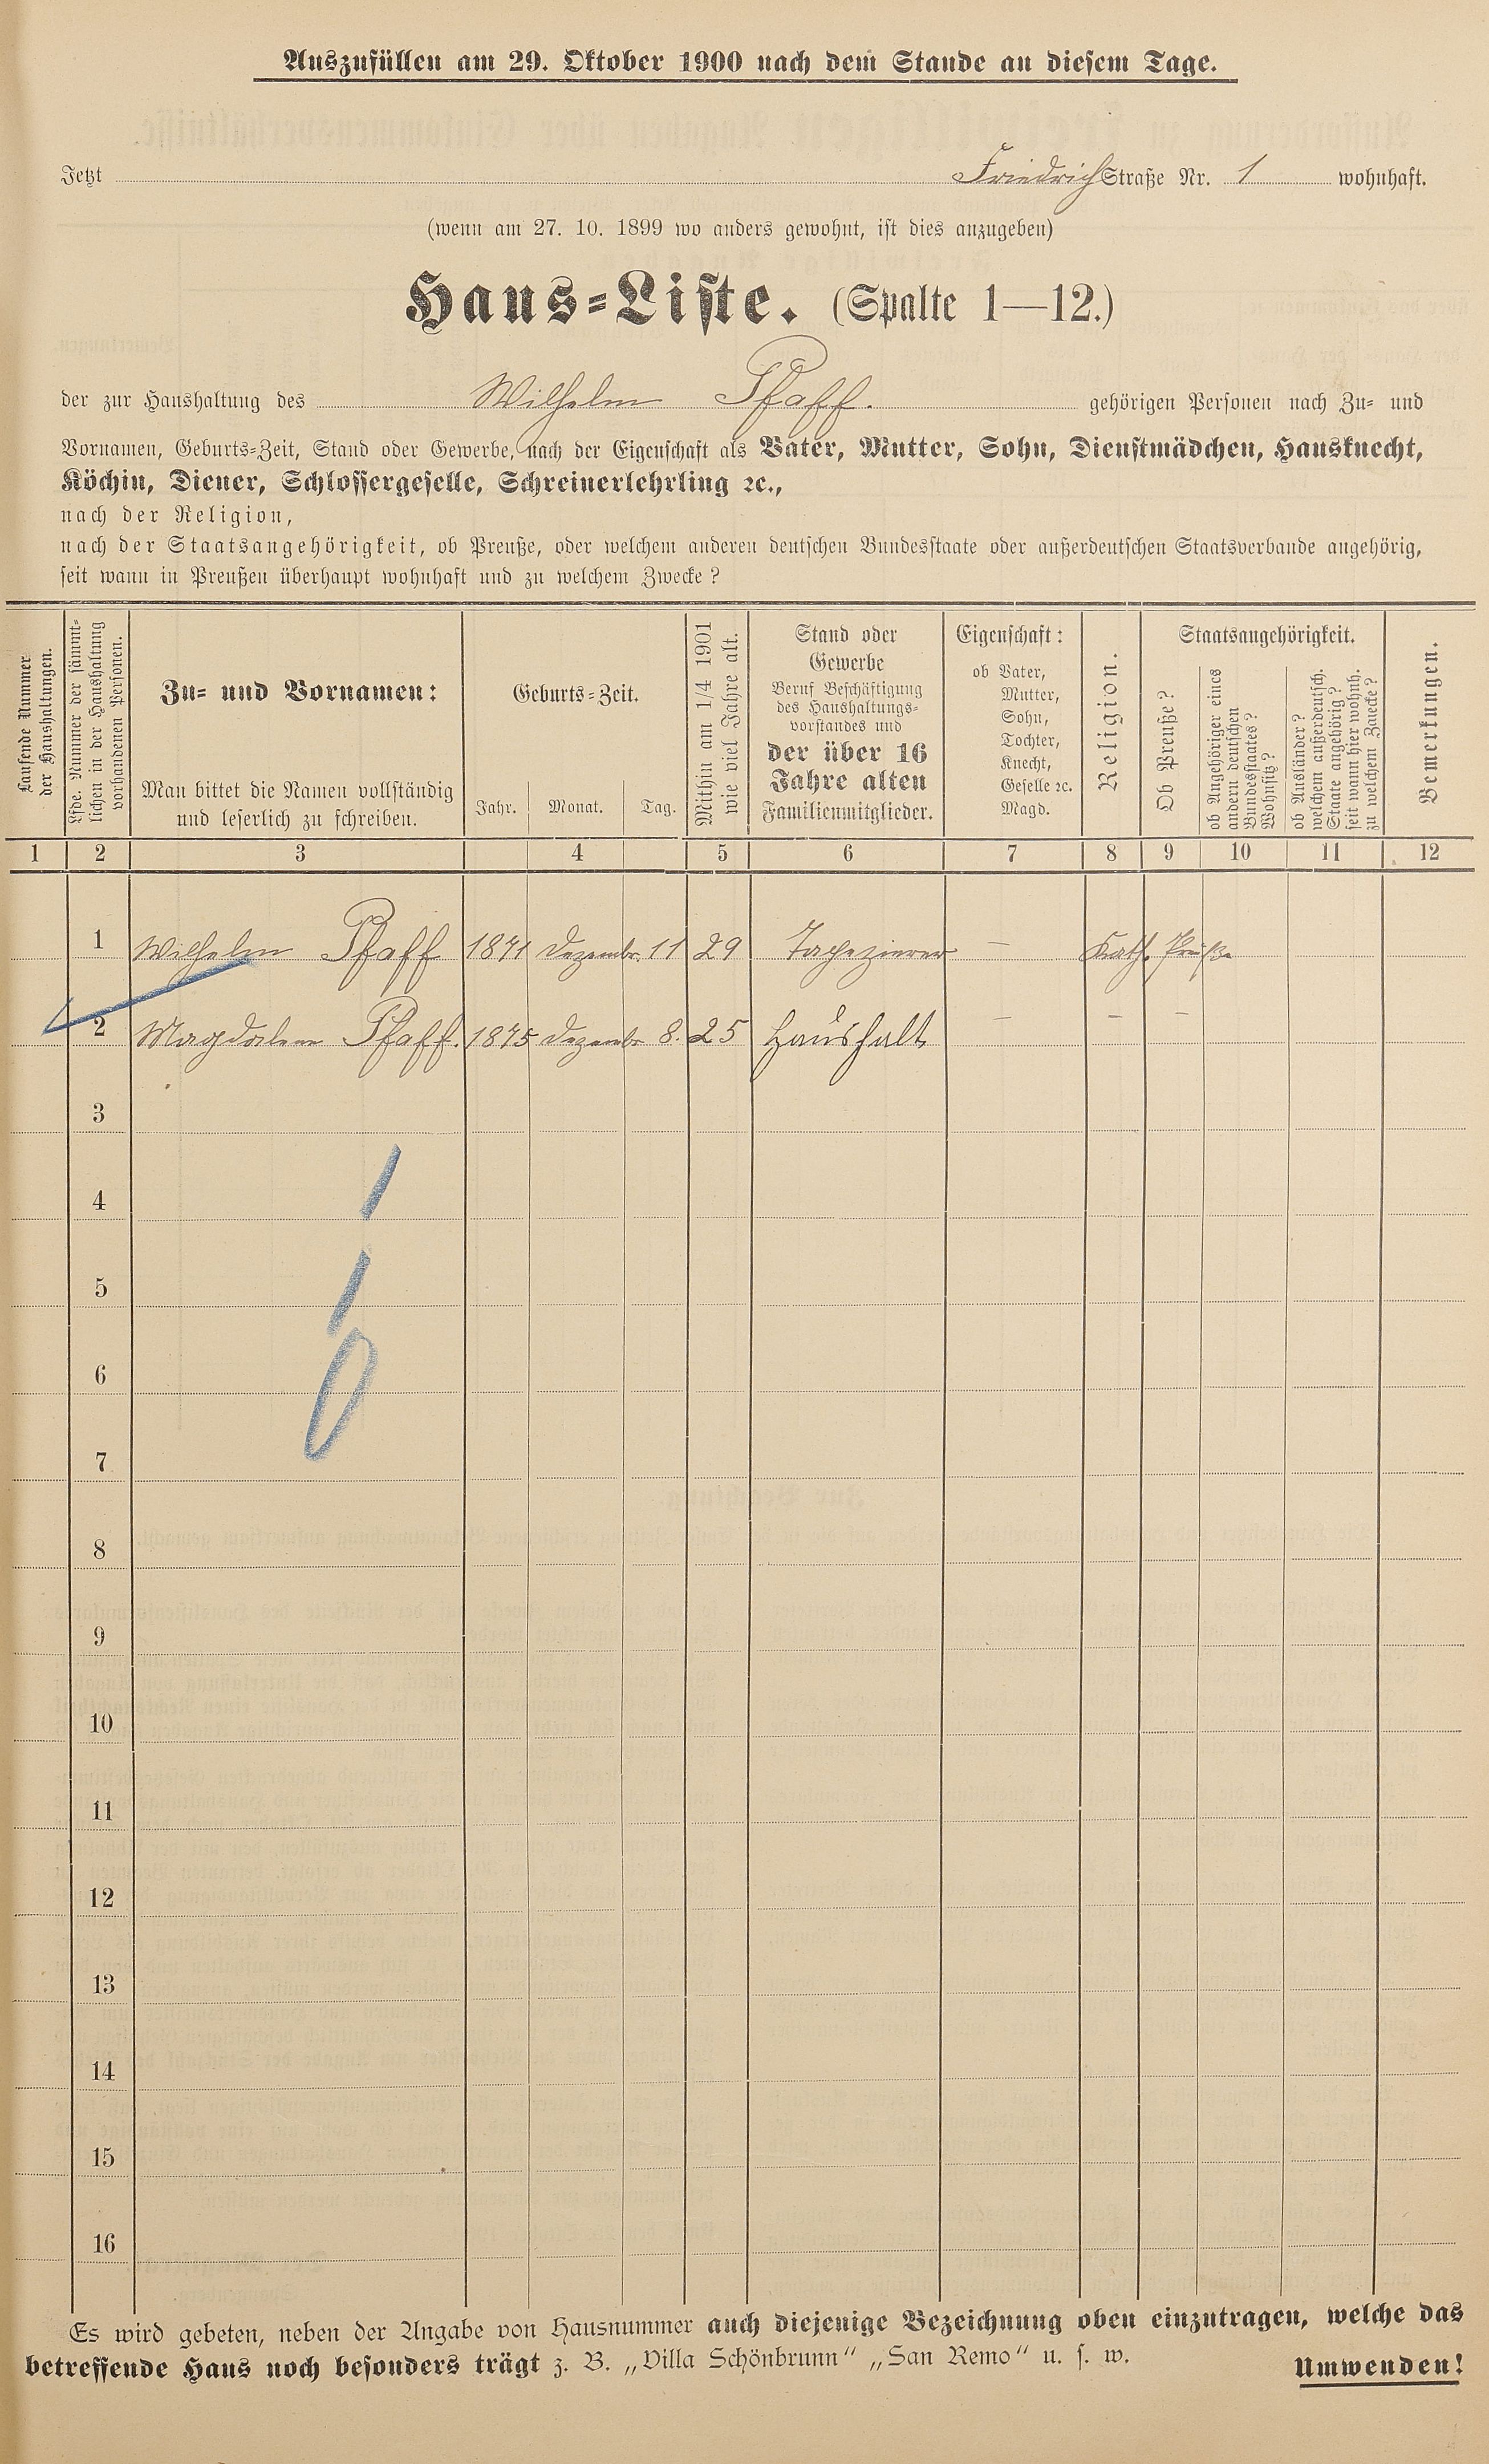 Auszufüllen am 29. Oktober 1900 nach dem Stande an diesem Tage.
Jetzt Friedrich Straße Nr. 1 wohnhaft.
(wenn am 27. 10. 1899 wo anders gewohnt, ist dies anzugeben)
Haus-Liste. (Spalte 1—12.)
der zur Haushaltung des Wilhelm Pfaff. gehörigen Personen nach Zu- und
Vornamen, Geburts-Zeit, Stand oder Gewerbe, nach der Eigenschaft als Vater, Mutter, Sohn, Dienstmädchen, Hausknecht,
Köchin, Diener, Schlossergeselle, Schreinerlehrling ꝛc.,
nach der Religion,
nach der Staatsangehörigkeit, ob Preuße, oder welchem anderen deutschen Bundesstaate oder außerdeutschen Staatsverbande angehörig,
seit wann in Preußen überhaupt wohnhaft und zu welchem Zwecke?
Laufende Nummer
der Haushaltungen.
Lfde. Nummer der sämmt-
lichen in der Haushaltung
vorhandenen Personen.
Zu- und Vornamen:
Man bittet die Namen vollständig
und leserlich zu schreiben.
Geburts-Zeit.
Jahr. Monat. Tag.
Mithin am 1/4 1901
wie viel Jahre alt.
Stand oder
Gewerbe
Beruf Beschäftigung
des Haushaltungs-
vorstandes und
der über 16
Jahre alten
Familienmitglieder.
Eigenschaft:
ob Vater,
Mutter,
Sohn,
Tochter,
Knecht,
Geselle ꝛc.
Magd.
Religion.
Staatsangehörigkeit.
Ob Preuße?
ob Angehöriger eines
andern deutschen
Bundesstaates?
Wohnsitz?
ob Ausländer?
welchem außerdeutsch.
Staate angehörig?
seit wann hier wohnh.
zu welchem Zwecke?
Bemerkungen.
1 2 3 4 5 6 7 8 9 10 11 12
1 Wilhelm Pfaff 1871 Dezembr. 11 29 Tapezierer — Kath. Preuße
2 Magdalene Pfaff. 1875 Dezembr 8. 25 Haushalt — — —
3
4
5
6
7
8
9
10
11
12
13
14
15
16
Es wird gebeten, neben der Angabe von Hausnummer auch diejenige Bezeichnung oben einzutragen, welche das
betreffende Haus noch besonders trägt z. B. „Villa Schönbrunn" „San Remo" u. s. w. Umwenden!